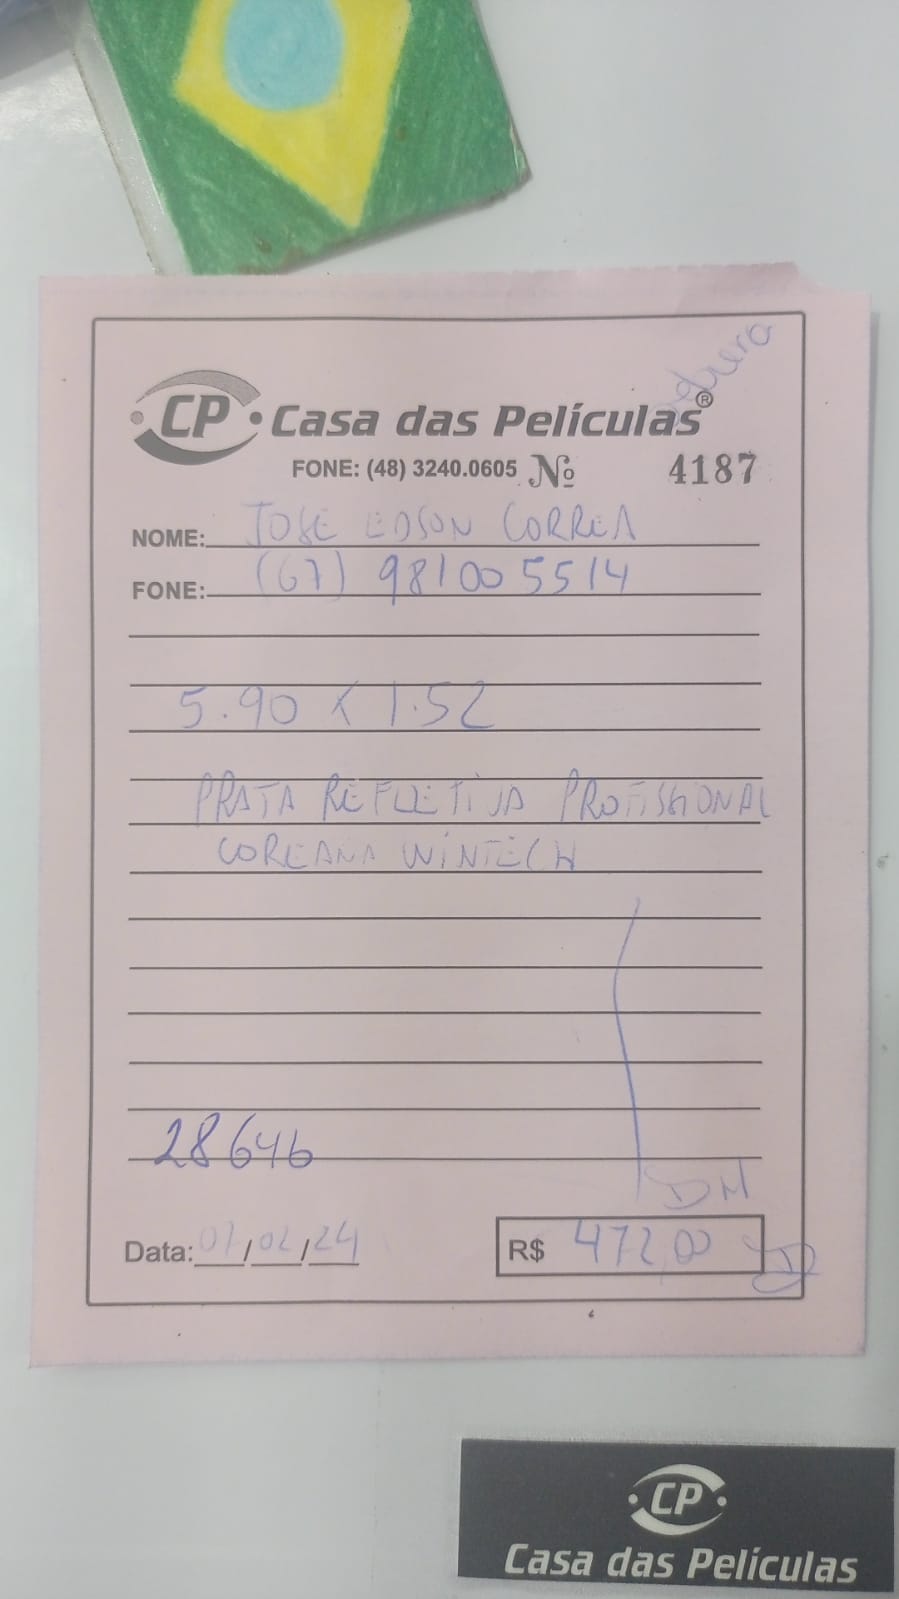 CP Casa das Películas®
FONE: (48) 3240.0605 Nº 4187
NOME: JOSE EDSON CORREA
FONE: (67) 981005514
5.90 x 1.52
PRATA REFLETIVA PROFISSIONAL
COREANA WINTECH
28646
DM
Data: 07/02/24 R$ 472,00
CP
Casa das Películas